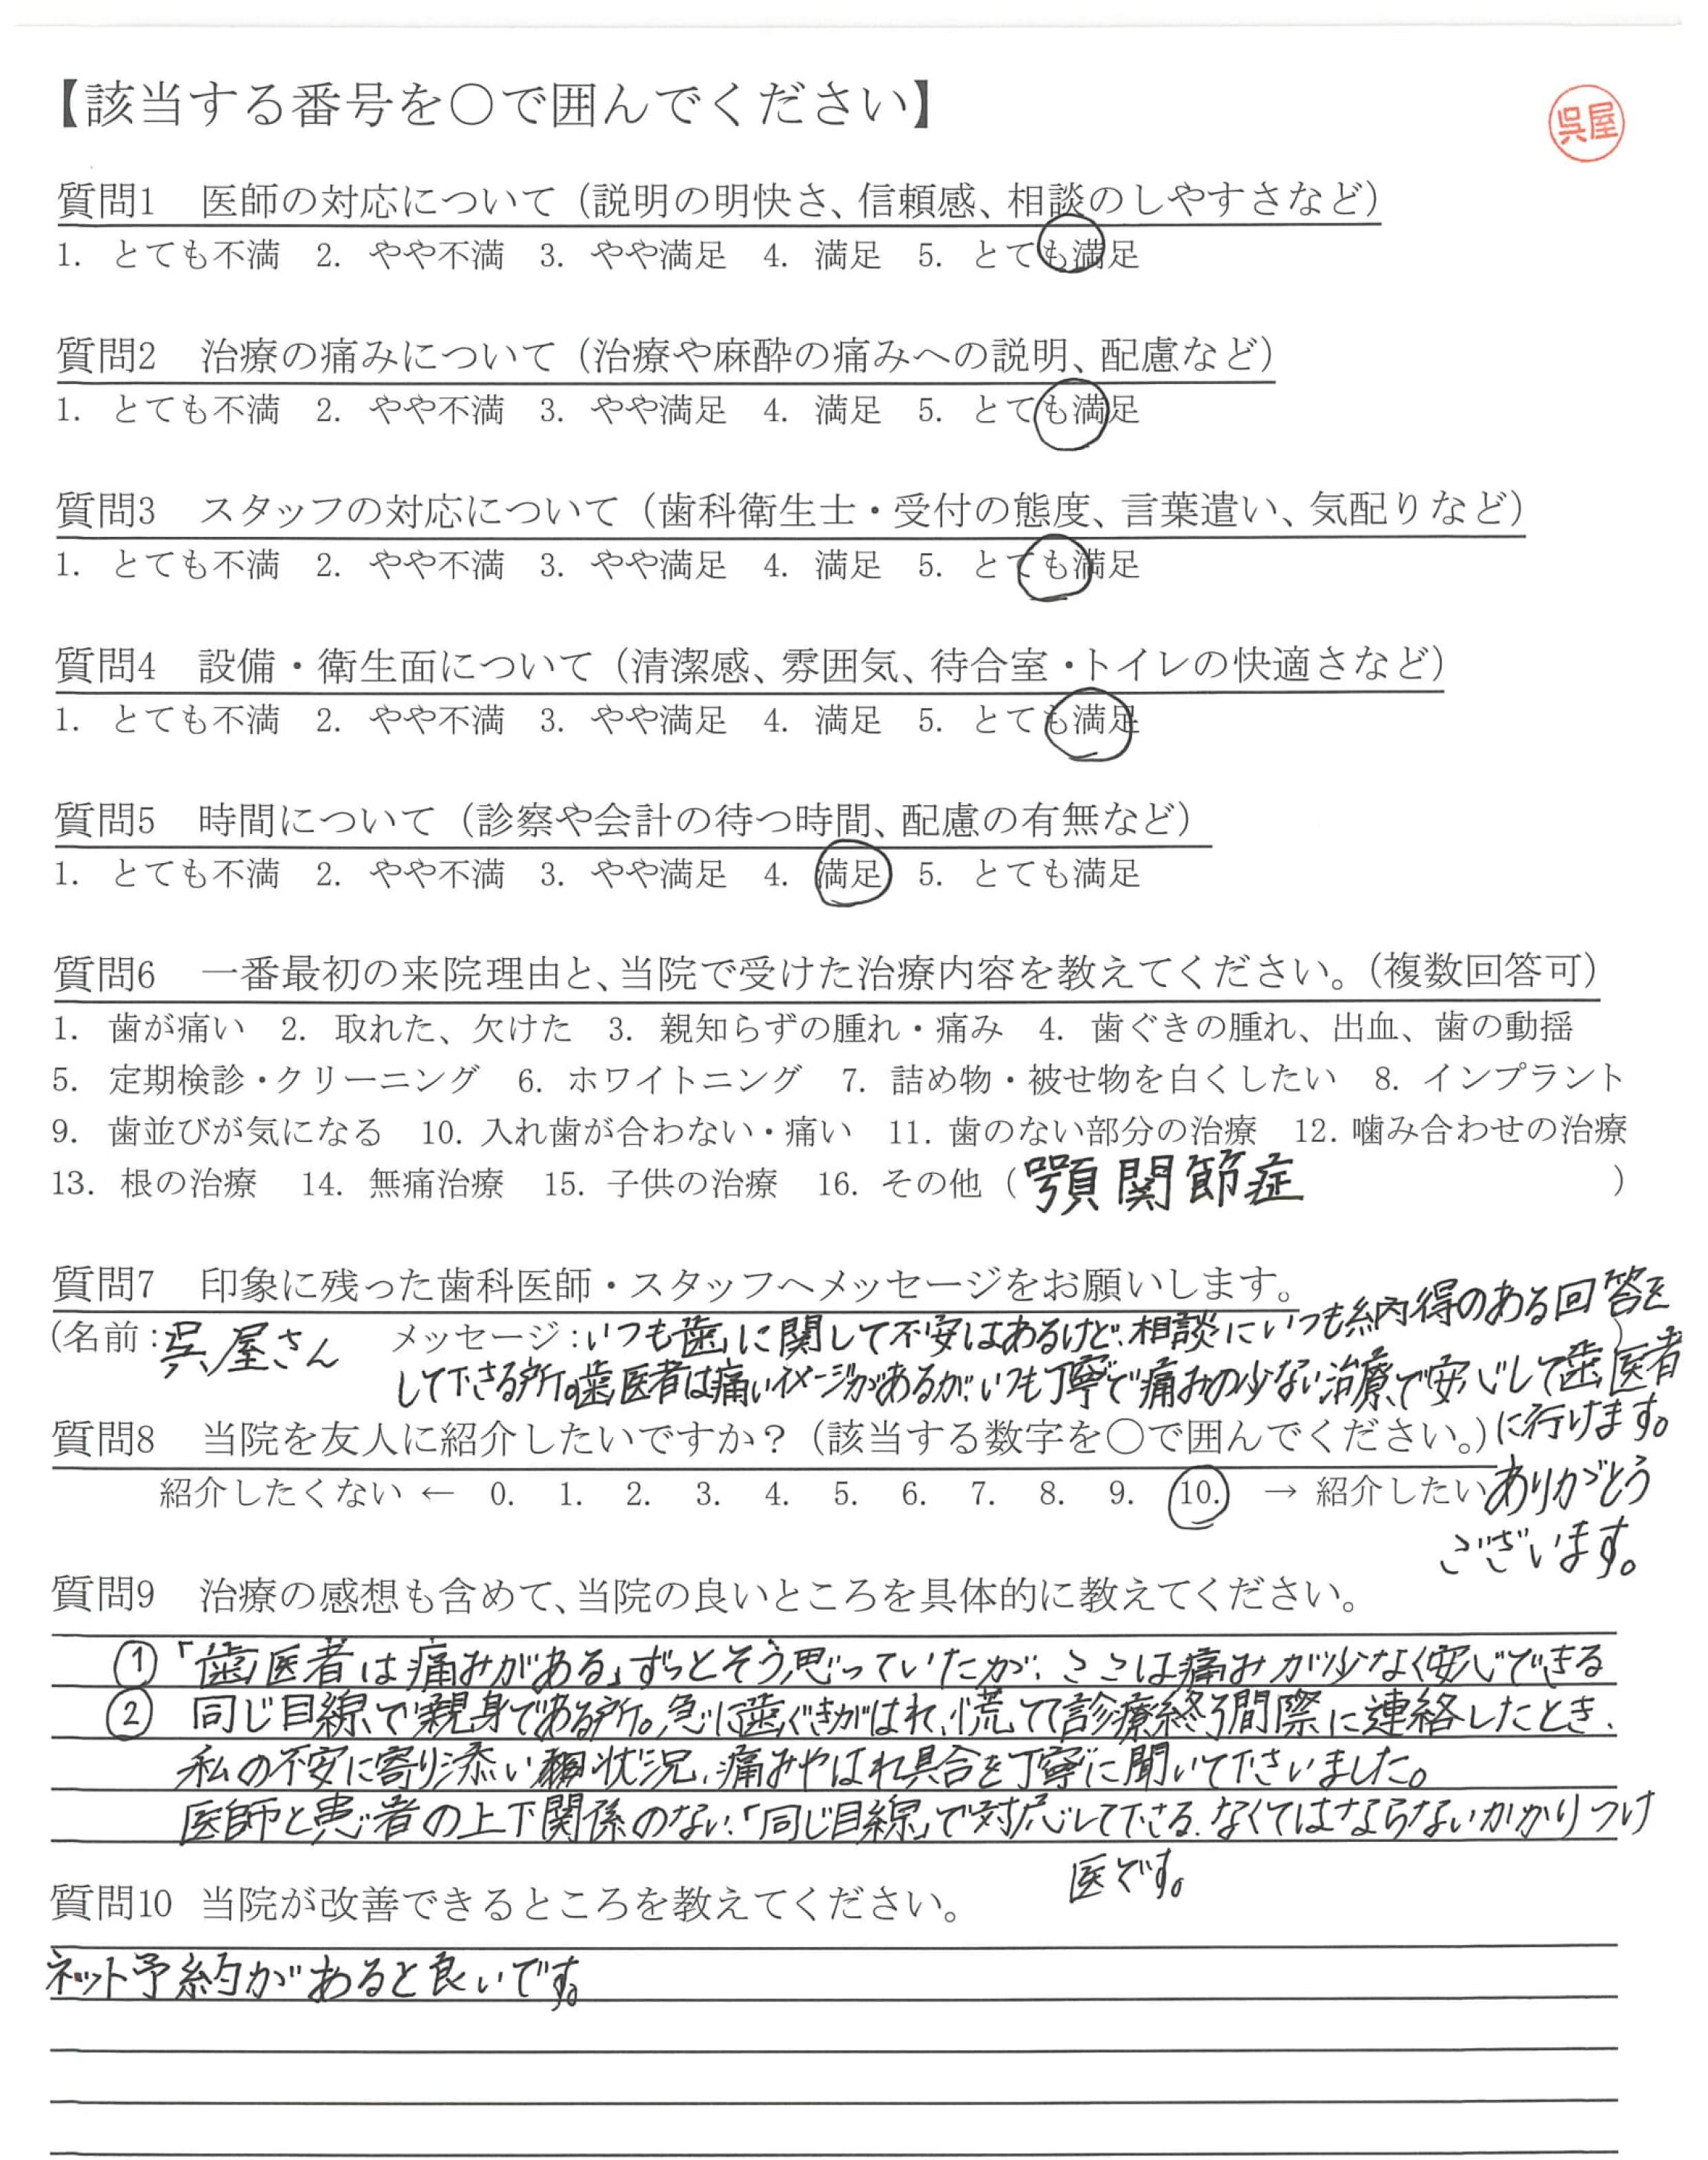 【該当する番号を〇で囲んでください】
呉屋
質問1　医師の対応について（説明の明快さ、信頼感、相談のしやすさなど）
1. とても不満　2. やや不満　3. やや満足　4. 満足　5. とても満足
質問2　治療の痛みについて（治療や麻酔の痛みへの説明、配慮など）
1. とても不満　2. やや不満　3. やや満足　4. 満足　5. とても満足
質問3　スタッフの対応について（歯科衛生士・受付の態度、言葉遣い、気配りなど）
1. とても不満　2. やや不満　3. やや満足　4. 満足　5. とても満足
質問4　設備・衛生面について（清潔感、雰囲気、待合室・トイレの快適さなど）
1. とても不満　2. やや不満　3. やや満足　4. 満足　5. とても満足
質問5　時間について（診察や会計の待つ時間、配慮の有無など）
1. とても不満　2. やや不満　3. やや満足　4. 満足　5. とても満足
質問6　一番最初の来院理由と、当院で受けた治療内容を教えてください。（複数回答可）
1. 歯が痛い　2. 取れた、欠けた　3. 親知らずの腫れ・痛み　4. 歯ぐきの腫れ、出血、歯の動揺
5. 定期検診・クリーニング　6. ホワイトニング　7. 詰め物・被せ物を白くしたい　8. インプラント
9. 歯並びが気になる　10. 入れ歯が合わない・痛い　11. 歯のない部分の治療　12. 噛み合わせの治療
13. 根の治療　14. 無痛治療　15. 子供の治療　16. その他（顎関節症　）
質問7　印象に残った歯科医師・スタッフへメッセージをお願いします。
（名前：呉屋さん　メッセージ：いつも歯に関して不安はあるけど、相談にいつも納得のある回答を）
して下さる所。歯医者は痛いイメージがあるが、いつも丁寧で痛みの少ない治療で安心して歯医者
に行けます。
質問8　当院を友人に紹介したいですか？（該当する数字を〇で囲んでください。）
紹介したくない ← 0. 1. 2. 3. 4. 5. 6. 7. 8. 9. 10. → 紹介したい
ありがとう
ございます。
質問9　治療の感想も含めて、当院の良いところを具体的に教えてください。
①「歯医者は痛みがある」ずっとそう思っていたが、ここは痛みが少なく安心できる
② 同じ目線で親身である所。急に歯ぐきがはれ、慌てて診療終了間際に連絡したとき、
私の不安に寄り添い 状況、痛みやはれ具合を丁寧に聞いて下さいました。
医師と患者の上下関係のない、「同じ目線」で対応して下さる、なくてはならないかかりつけ
医です。
質問10 当院が改善できるところを教えてください。
ネット予約があると良いです。